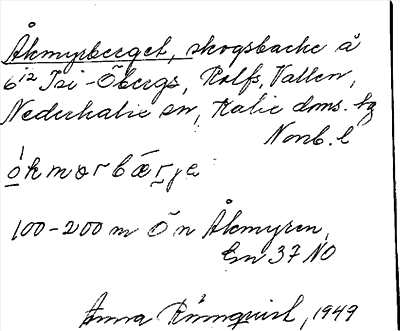 Åkmyrberget, skogsbacke å
6¹² Isi-Öbergs, Rolfs, Vallen,
Nederkalix sn, Kalix doms. tg
Norrb. l
ókmorbærje
100-200 m Ö n Åkmyren,
En 37 NO
Anna Rönnqvist, 1949